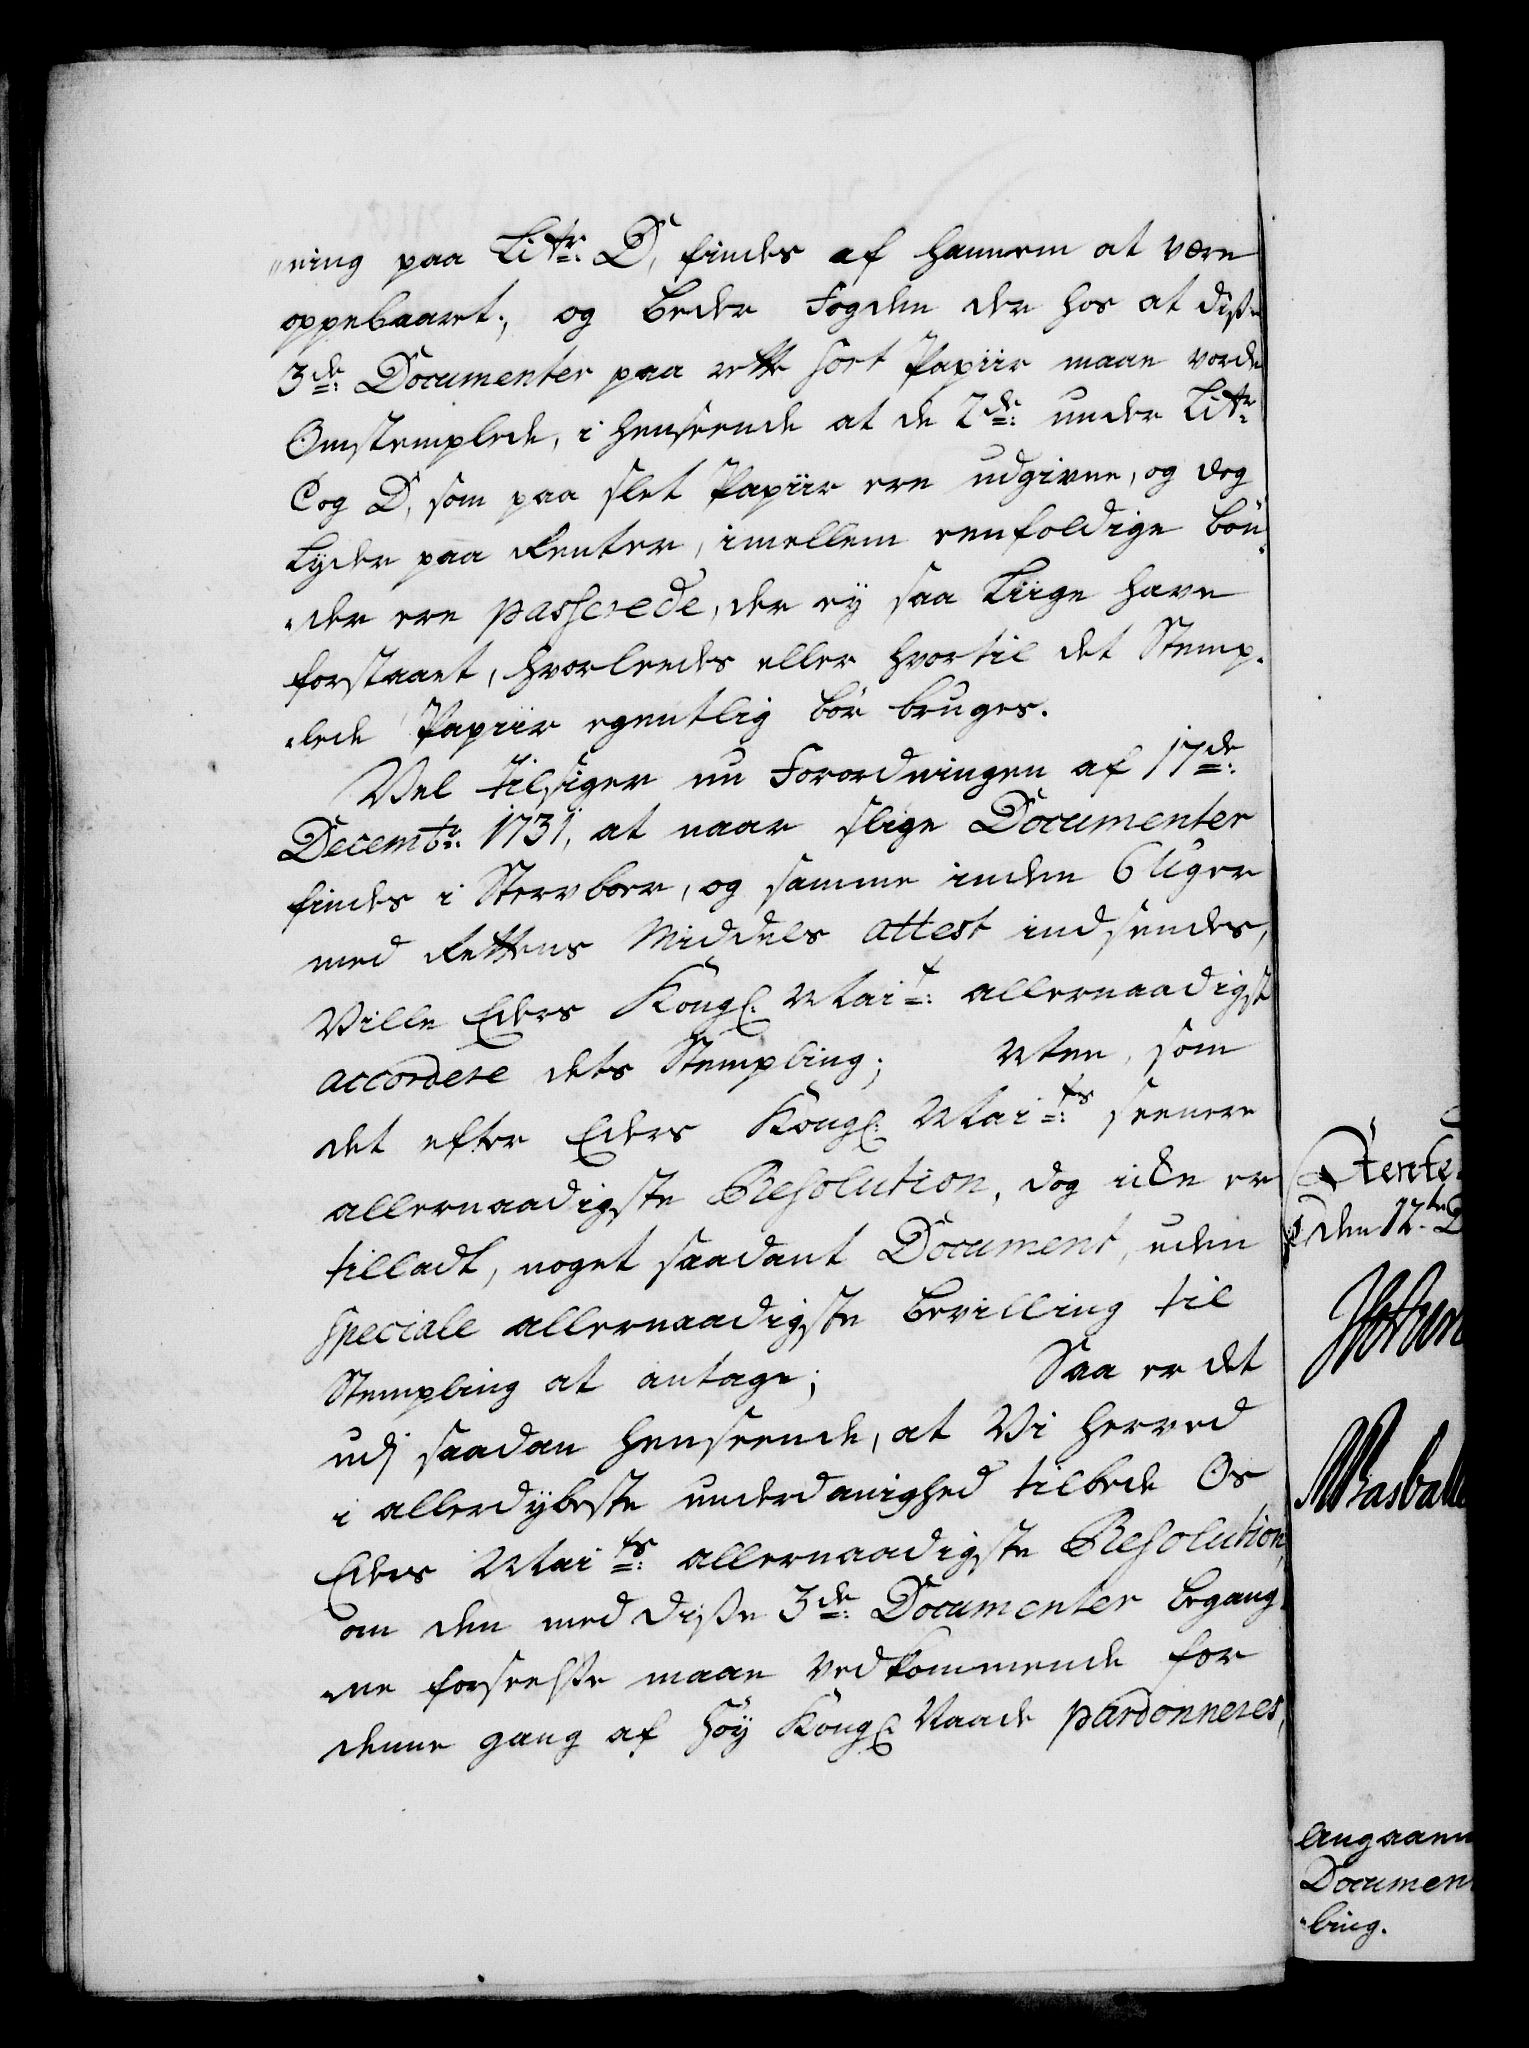 "ning paa Littr: D, findes af hannem at være
oppebaaret; og beder Fogden der hos at diße
3de: Documenter paa rette sort Papiir maae vorde
Omstemplede, i henseende at de 2de: under Littr:
C og D, som paa slet Papiir ere udgivne, og dog
lyder paa Renter, imellem eenfoldige bön-
"der ere passerede, der ey saa liige have
forstaaet, hvorleedes eller hvortil det Stemp-
"lede Papiir egentlig bör bruges.
Vel tilsiger nu Forordningen af 17de:
Decembr: 1731, at naar slige Documenter
findes i Stervboer, og samme inden 6 Uger
med Rettens Middels attest indsendes,
Ville Eders Kongl: Mait: allernaadigst
accordere dets Stempling; Men, som
det efter Eders Kongl: Maits: seenere
allernaadigste Resolution, dog icke er
tilladt, noget saadant Document, uden
speciale allernaadigste bevilling til
Stempling at antage; Saa er det
udj saadan henseende, at Vi herved
i allerdybeste underdanighed tilbede Os
Eders Maits: allernaadigste Resolution,
om den med diße 3de: Documenter begang-
"ne forseelße maae Vedkommende for
denne gang af höy Kongl: Naade pardonneres,
Rente-
den 12te D
Angaaen
Documen
"ling.